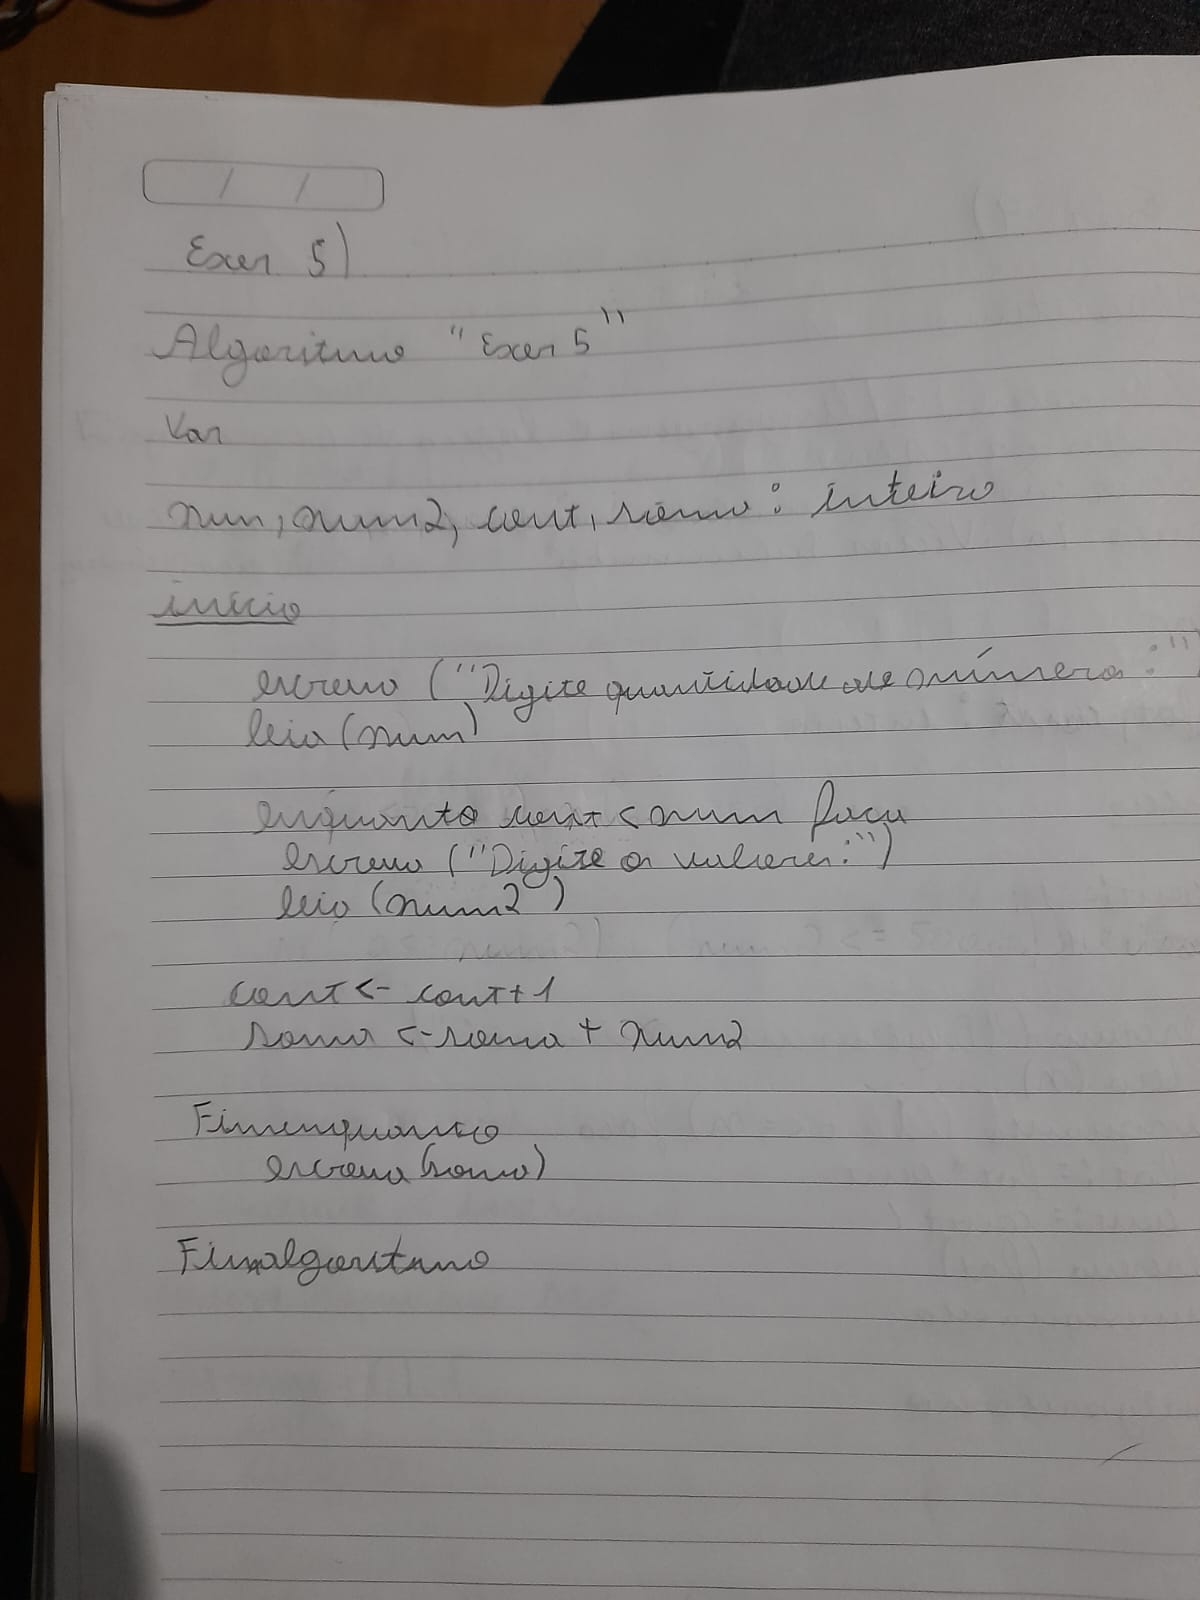 / /
Exer 5)
Algoritmo "Exer 5"
Var
num, num2, cont, soma : inteiro
início
escreva ("Digite quantidade de números :"
leia (num)
enquanto cont < num faça
escreva ("Digite os valores:")
leia (num2)
cont <- cont + 1
soma <- soma + num2
Fimenquanto
escreva (soma)
Fimalgoritmo